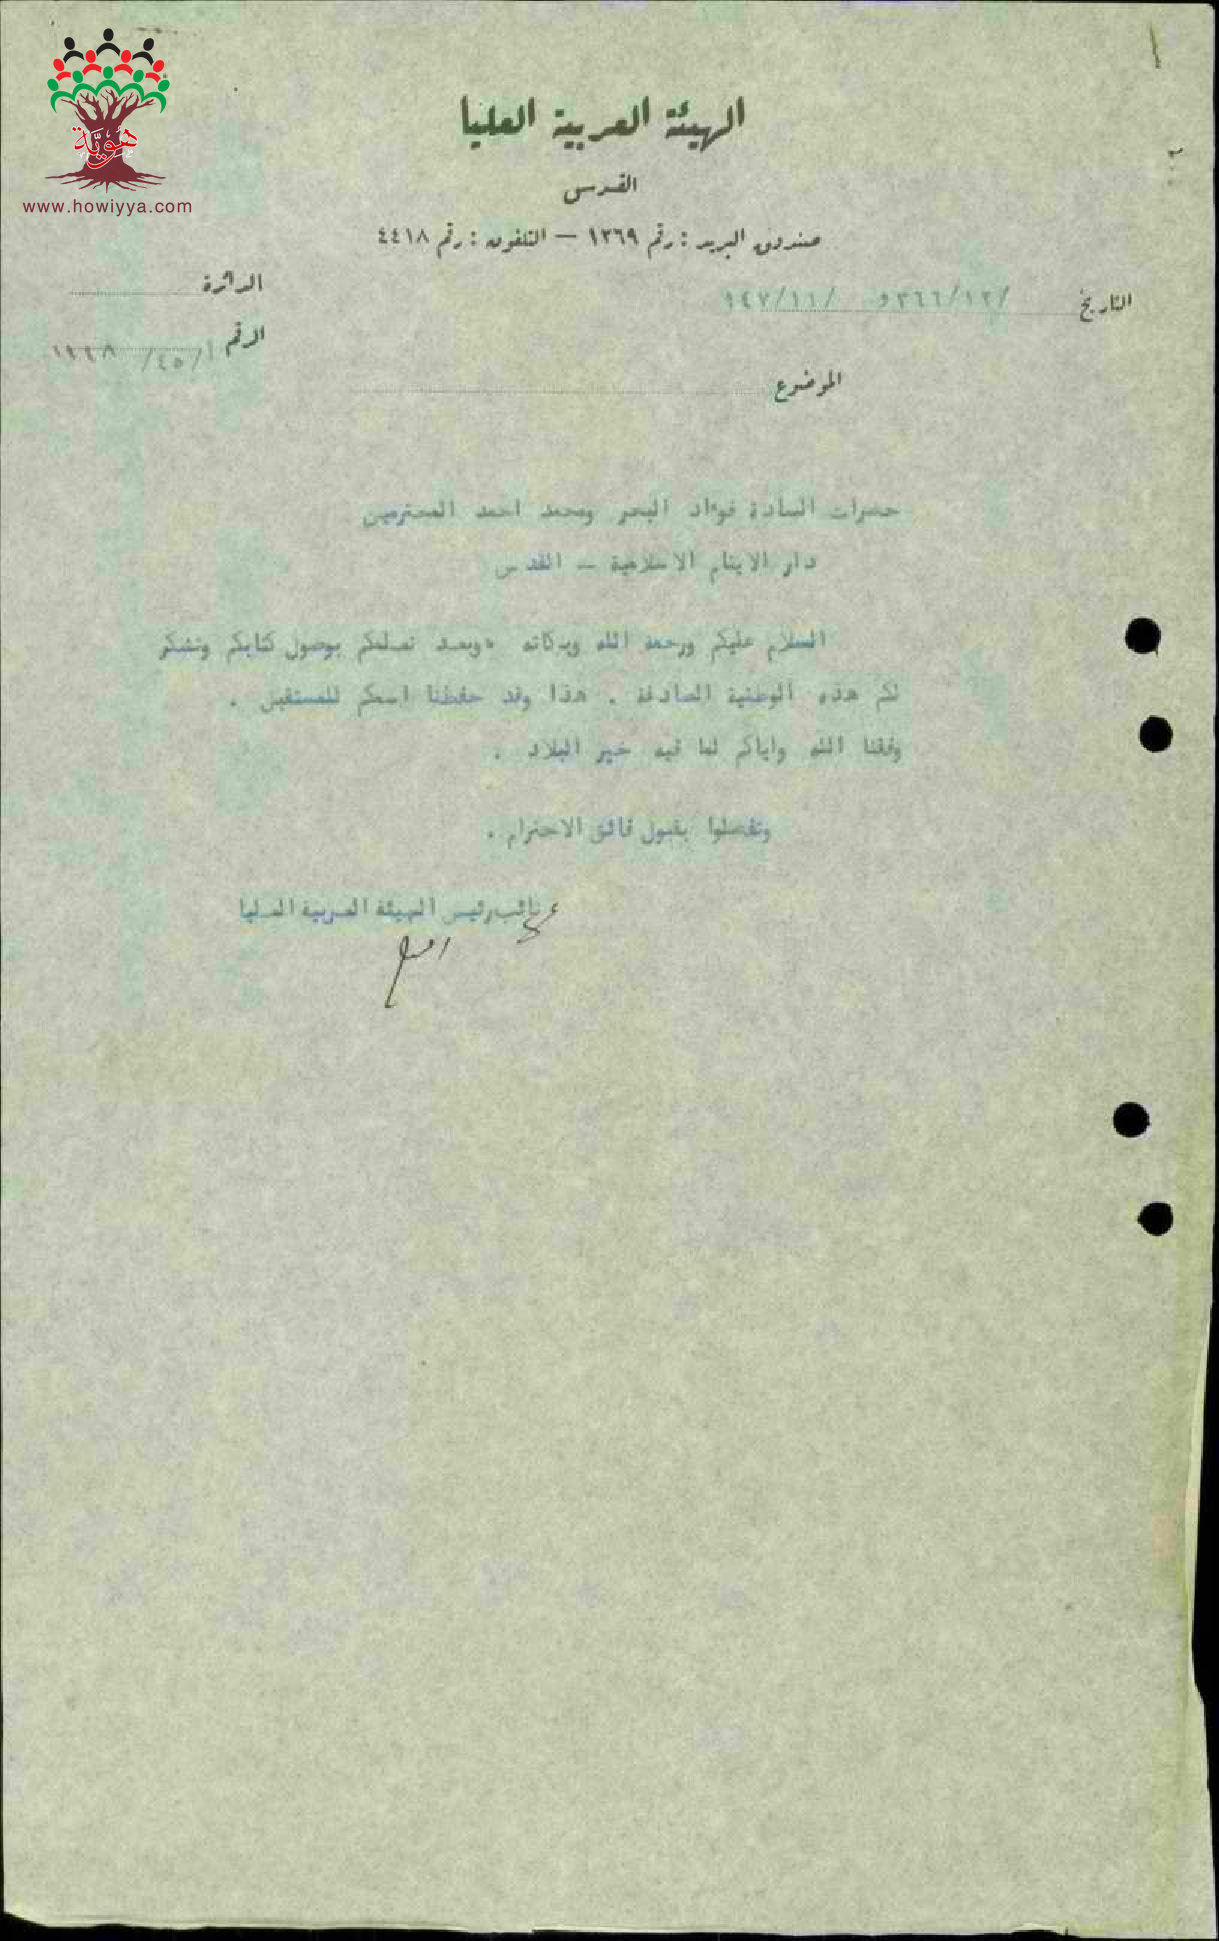 هوية
www.howiyya.com
الهيئة العربية العليا
القدس
صندوق البريد : رقم ١٣٦٩ — التلفون : رقم ٤٤١٨
الدائرة
التاريخ /١٢/٣٦٦ و /١١/١٤٧
الرقم ١/٤٥/
الموضوع
حضرات السادة فواد البحر ومحمد احمد المحترمين
دار الايتام الاسلامية – القدس
السلام عليكم ورحمة الله وبركاته ، وبعد نعلمكم بوصول كتابكم ونشكر
لكم هذه الوطنية الصادقة . هذا وقد حفظنا اسمكم للمستقبل .
وفقنا الله واياكم لما فيه خير البلاد .
وتفضلوا بقبول فائق الاحترام .
نائب رئيس الهيئة العربية العليا